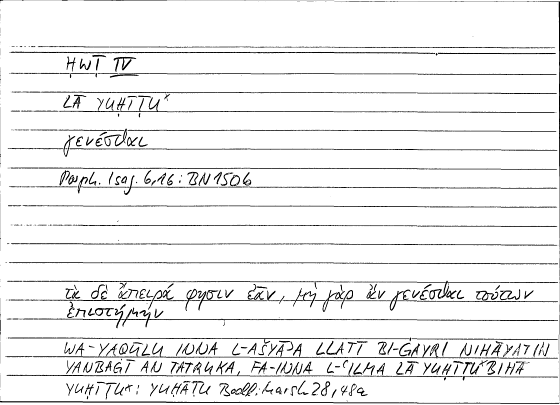 ḤWṬ IV
LĀ YUḤĪṬU*
γενέσθαι
Porph. Isag. 6,16 : BN 1506
τὰ δὲ ἄπειρά φησιν ἐᾶν, μὴ γὰρ ἂν γενέσθαι τούτων
ἐπιστήμην
WA-YAQŪLU INNA L-AŠYĀʾA LLATĪ BI-ĠAYRI NIHĀYATIN
YANBAĠĪ AN TATRUKA, FA-INNA L-ʿILMA LĀ YUḤĪṬU* BIHĀ
YUḤĪṬU* : YUḤĀṬU Bodl. Marsh 28, 48a